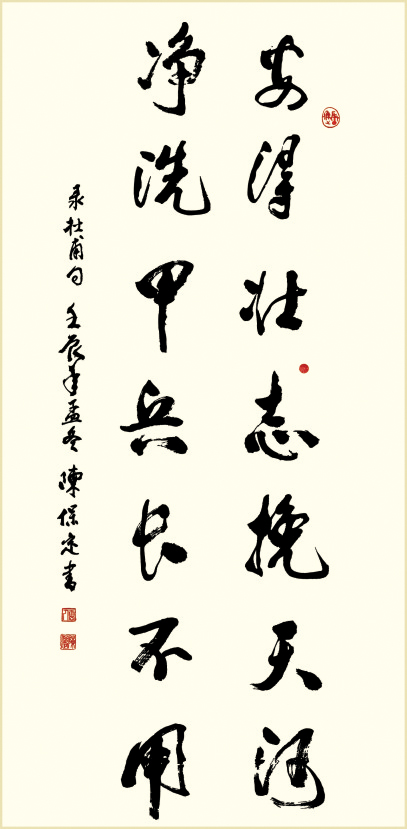 安得壮志挽天河
净洗甲兵长不用
录杜甫句 壬辰年孟冬 陳保定書